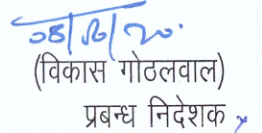 (विकास गोठलवाल)
प्रबन्ध निदेशक